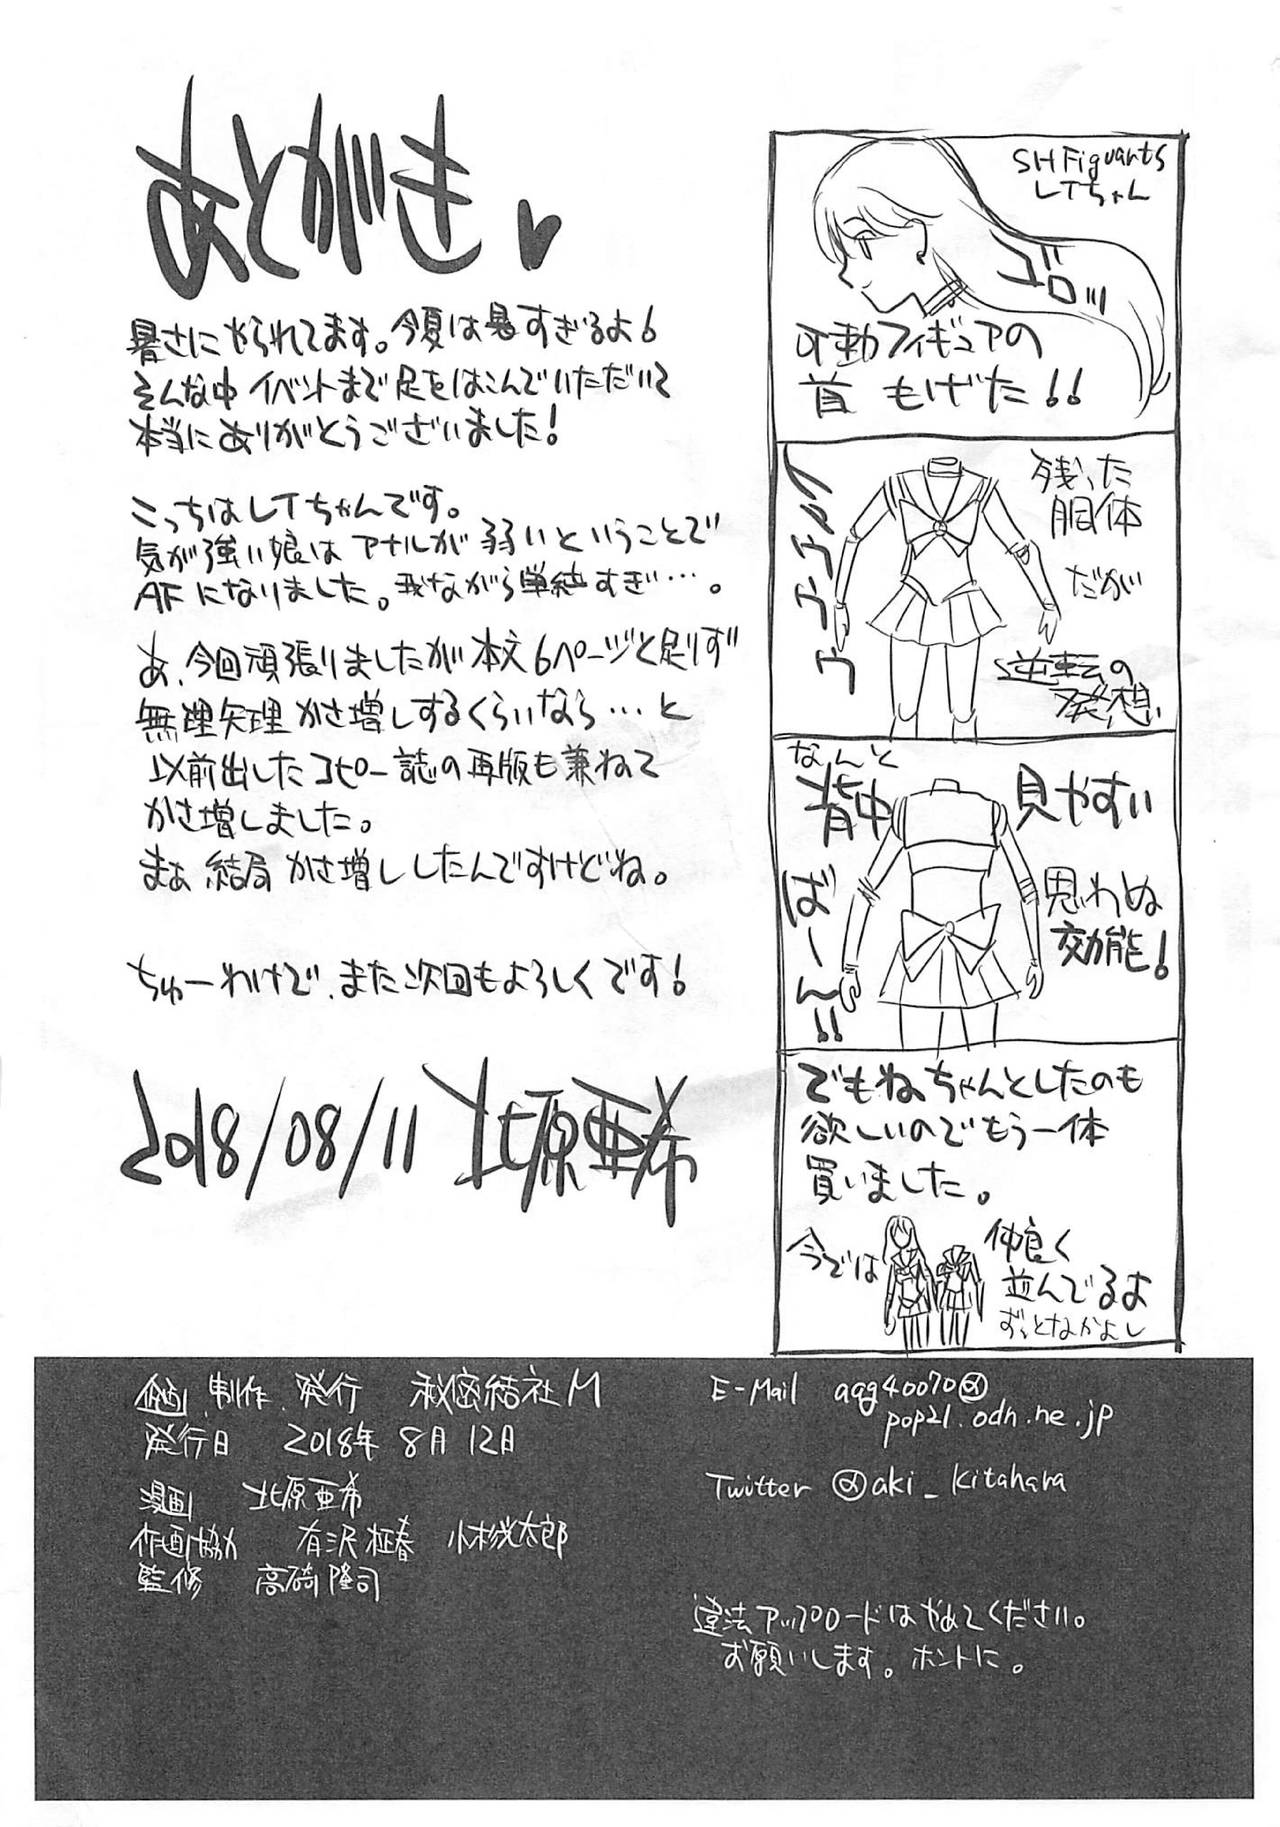 あとがき♥
暑さにやられてます。今夏は暑すぎるよ6
そんな中イベントまで足をはこんでいただいて
本当にありがとうございました!
こっちはレイちゃんです。
気が強い娘はアナルが弱いということで
AFになりました。我ながら単純すぎ…。
あ、今回頑張りましたが本文6ページと足りず
無理矢理かさ増しするくらいなら…と
以前出したコピー誌の再版も兼ねて
かさ増しました。
まぁ結局かさ増ししたんですけどね。
ちゅーわけで、また次回もよろしくです!
2018/08/11 北原亜希
SHFiguarts
レイちゃん
ゴロッ
可動フィギュアの
首もげた!!
残った
胴体
だが
逆転の
発想
なんと
背中
見やすい
ばーん!!
思わぬ
効能!
でもね、ちゃんとしたのも
欲しいのでもう一体
買いました。
今では
仲良く
並んでるよ
ずっとなかよし
企画、制作、発行 秘密結社M
発行日 2018年8月12日
漫画 北原亜希
作画協力 有沢 小杉光太郎
監修 高碕隆司
E-Mail agg40070@
pop21.odn.ne.jp
Twitter @aki_kitahara
違法アップロードはやめてください。
お願いします。ホントに。